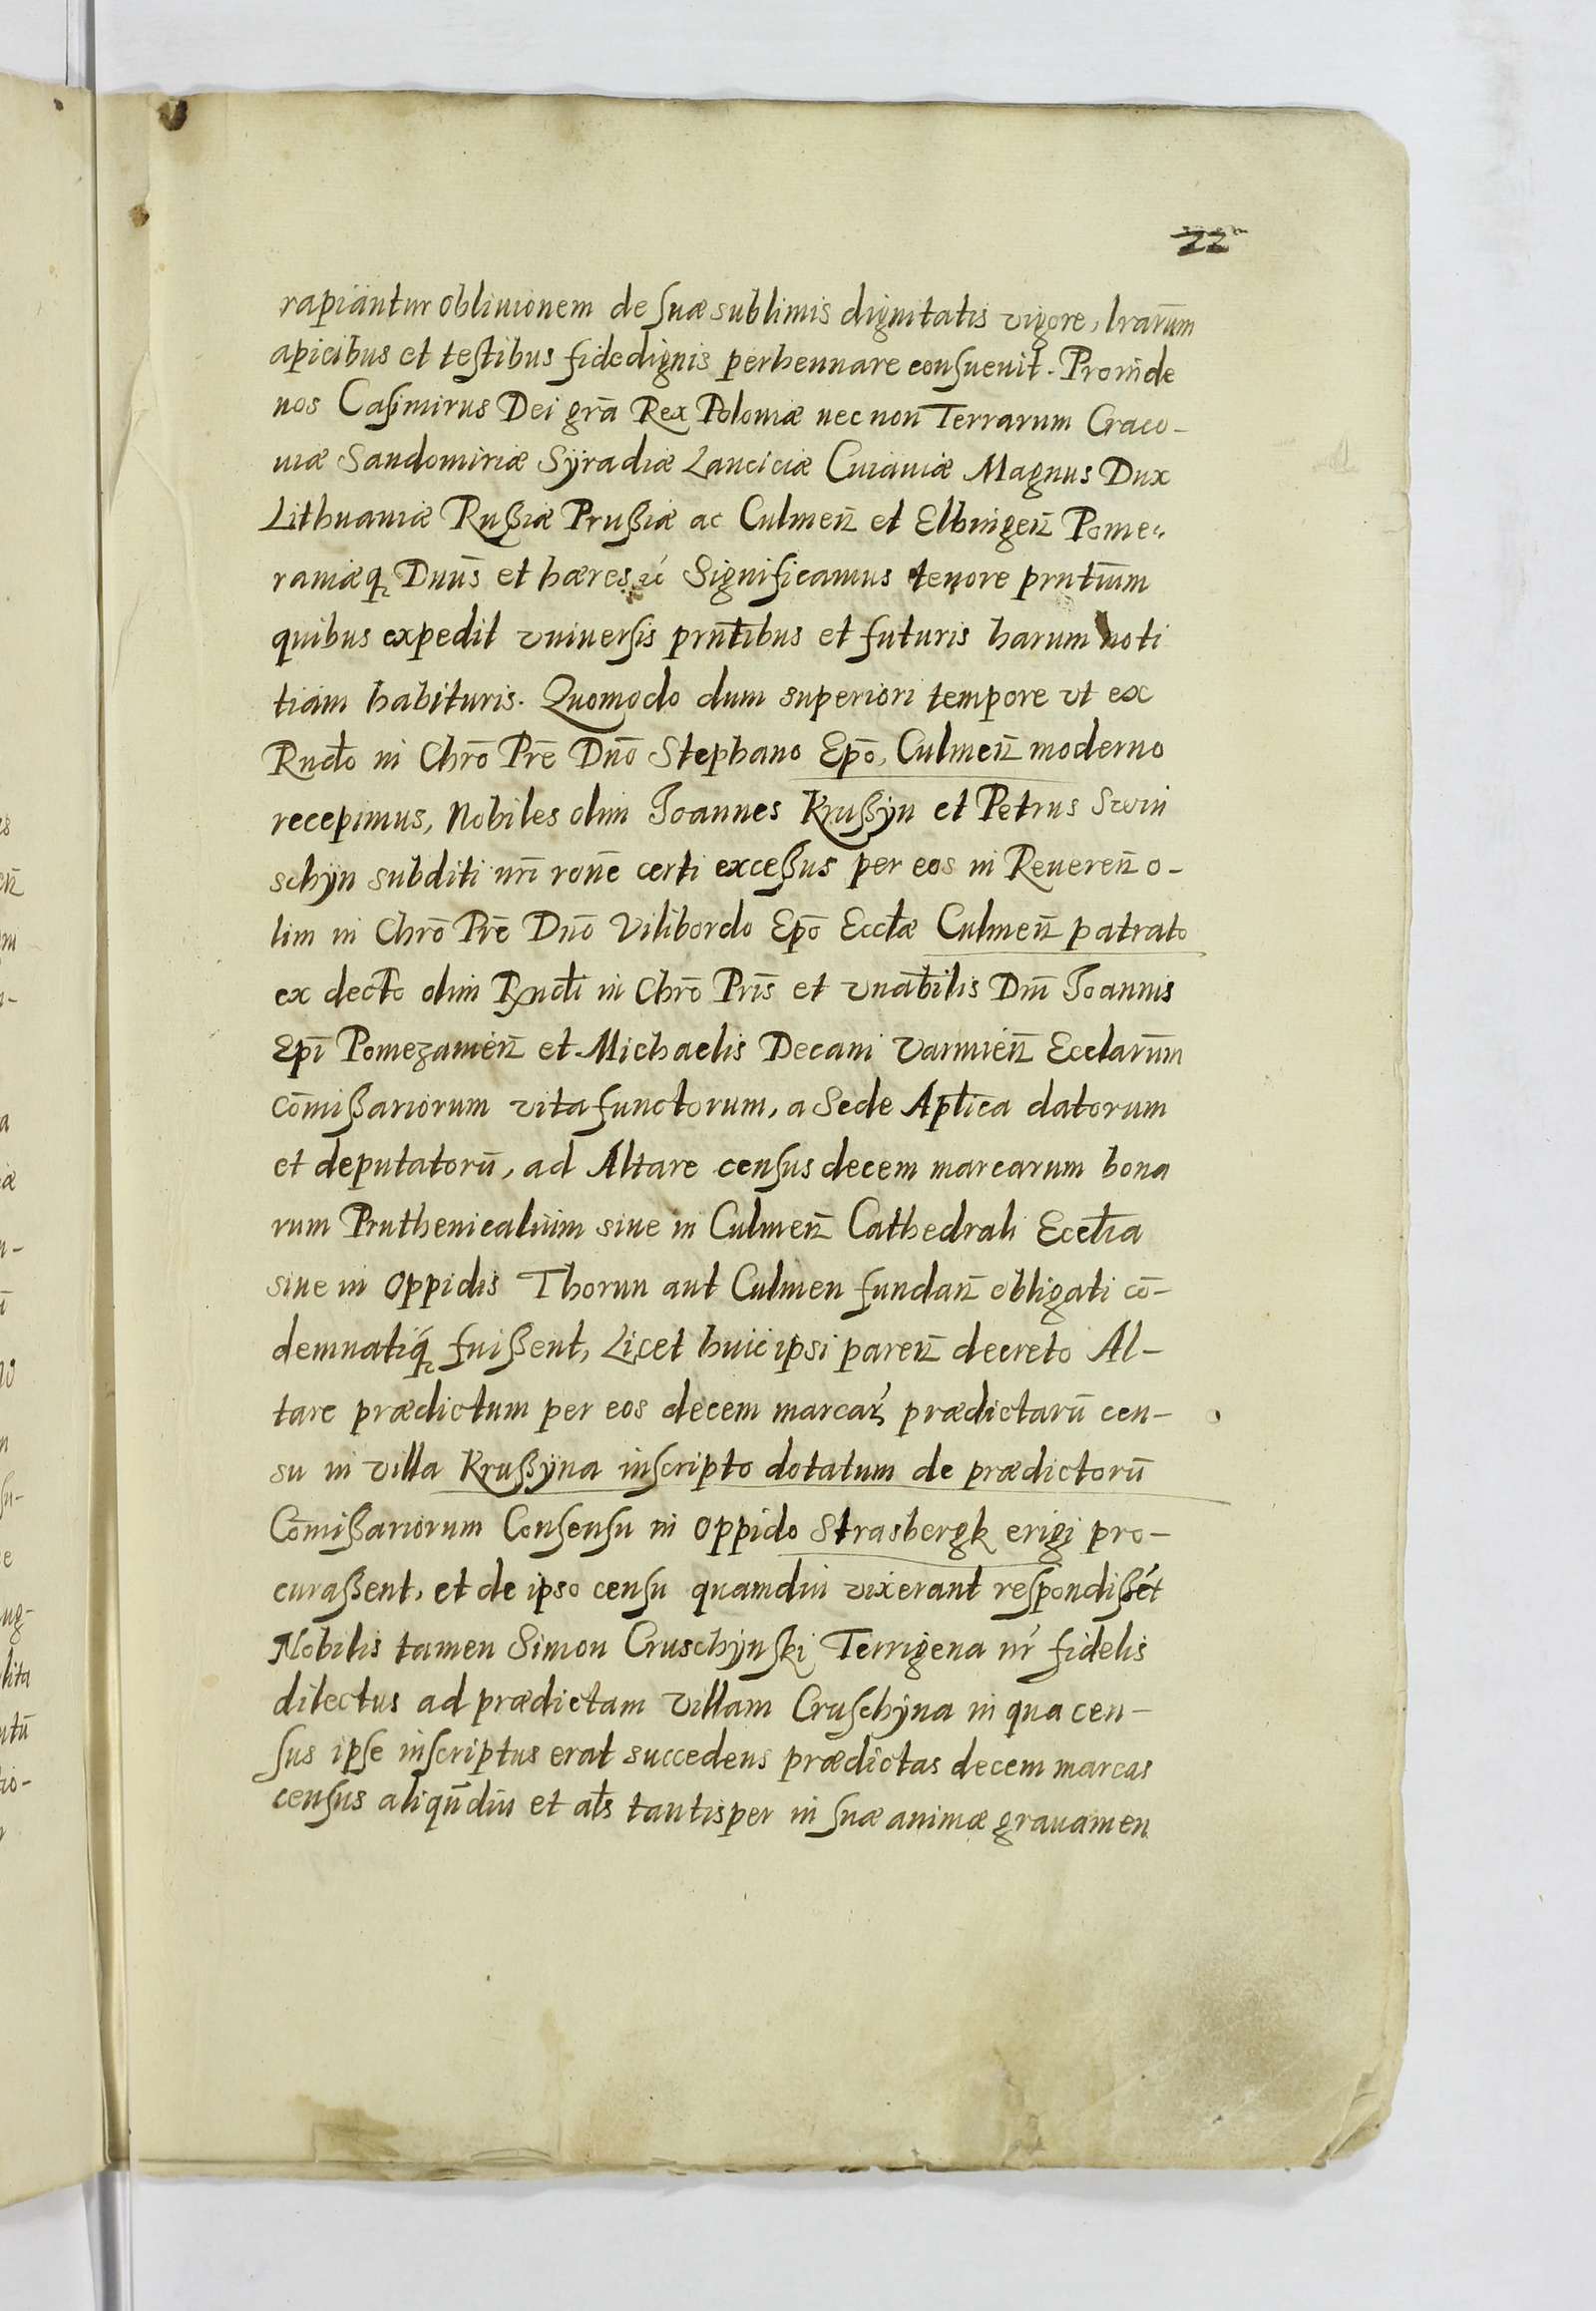 22
rapiantur obliuionem de suæ sublimis dignitatis vigore, lrarum̄
apicibus et testibus fidedignis perhennare consueuit. Proinde
nos Casimirus Dei grā Rex Poloniæ nec non Terrarum Craco-
uiæ Sandomiriæ Sÿradiæ Lanciciæ Cuiauiæ Magnus Dux
Lithuaniæ Rußiæ Prußiæ ac Culmen̄ et Elbingen̄ Pome-
raniæq₃ Dnūs et hæres ꝛc̄ Significamus tenore prn̄tium
quibus expedit vniuersis prn̄tibus et futuris harum noti
tiam habituris. Quomodo dum superiori tempore vt ex
Rndo in Chrō Prē Dnō Stephano Epō, Culmen̄ moderno
recepimus, Nobiles olim Joannes Krußyn et Petrus Swin
schÿn subditi nrī ronē certi exceßus per eos in Reueren̄ o-
lim in Chrō Prē Dnō Vilibordo Epō Ecclæ Culmen̄ patrato
ex decto olim Rndi in Chrō Prīs et vnabilis Dnī Joannis
Epī Pomezanien̄ et Michaelis Decani Varmien̄ Ecclarūm
Com̄ißariorum vita functorum, a Sede Aplica datorum
et deputatorū, ad Altare census decem marcarum bona
rum Pruthenicalium siue in Culmen̄ Cathedrali Ecclia
siue in oppidis Thorun aut Culmen fundan̄ obligati cō-
demnatiq₃ fuißent, Licet huic ipsi paren̄ decreto Al-
tare prædictum per eos decem marcar̄ prædictarū cen-
su in villa Krußÿna inscripto dotatum de prædictorū
Com̄ißariorum Consensu in oppido Strasbergk erigi pro-
curaßent, et de ipso censu quamdiu vixerant respondißēt
Nobilis tamen Simon Cruschÿnski Terrigena nr̄ fidelis
dilectus ad prædictam villam Cruschÿna in qua cen-
sus ipse inscriptus erat succedens prædictas decem marcas
census aliqūdiu et als tantisper in suæ animæ grauamen